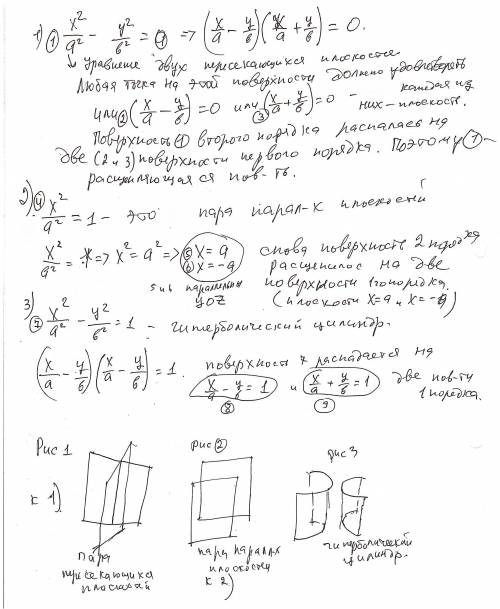 1) ① x²/a² - y²/b² = 0 => (x/a - y/b)(x/a + y/b) = 0.
Уравнение двух пересекающихся плоскостей
Любая точка на этой поверхности должна удовлетворять
или ② (x/a - y/b) = 0 или ③ (x/a + y/b) = 0 - каждая из
них - плоскость.
Поверхность ① второго порядка распалась на
две (2 и 3) поверхности первого порядка. Поэтому ① -
расщепляющаяся пов-ть.
2) ④ x²/a² = 1 - это пара парал-х плоскостей
x²/a² = 1 => x² = a² => ⑤ x = a
⑥ x = -a
снова поверхность 2 порядка
расщепилась на две
поверхности 1го порядка.
5 и 6 параллельны
yoz
(плоскости x=a и x=-a)
3) ⑦ x²/a² - y²/b² = 1 - гиперболический цилиндр.
(x/a - y/b)(x/a - y/b) = 1.
поверхность 7 распадается на
x/a - y/b = 1 и x/a + y/b = 1 две пов-ти
1 порядка.
⑧ ⑨
Рис 1
рис ②
рис 3
к 1)
пара
пересекающихся
плоскостей
пара паралл-х
плоскостей
к 2)
гиперболический
цилиндр.